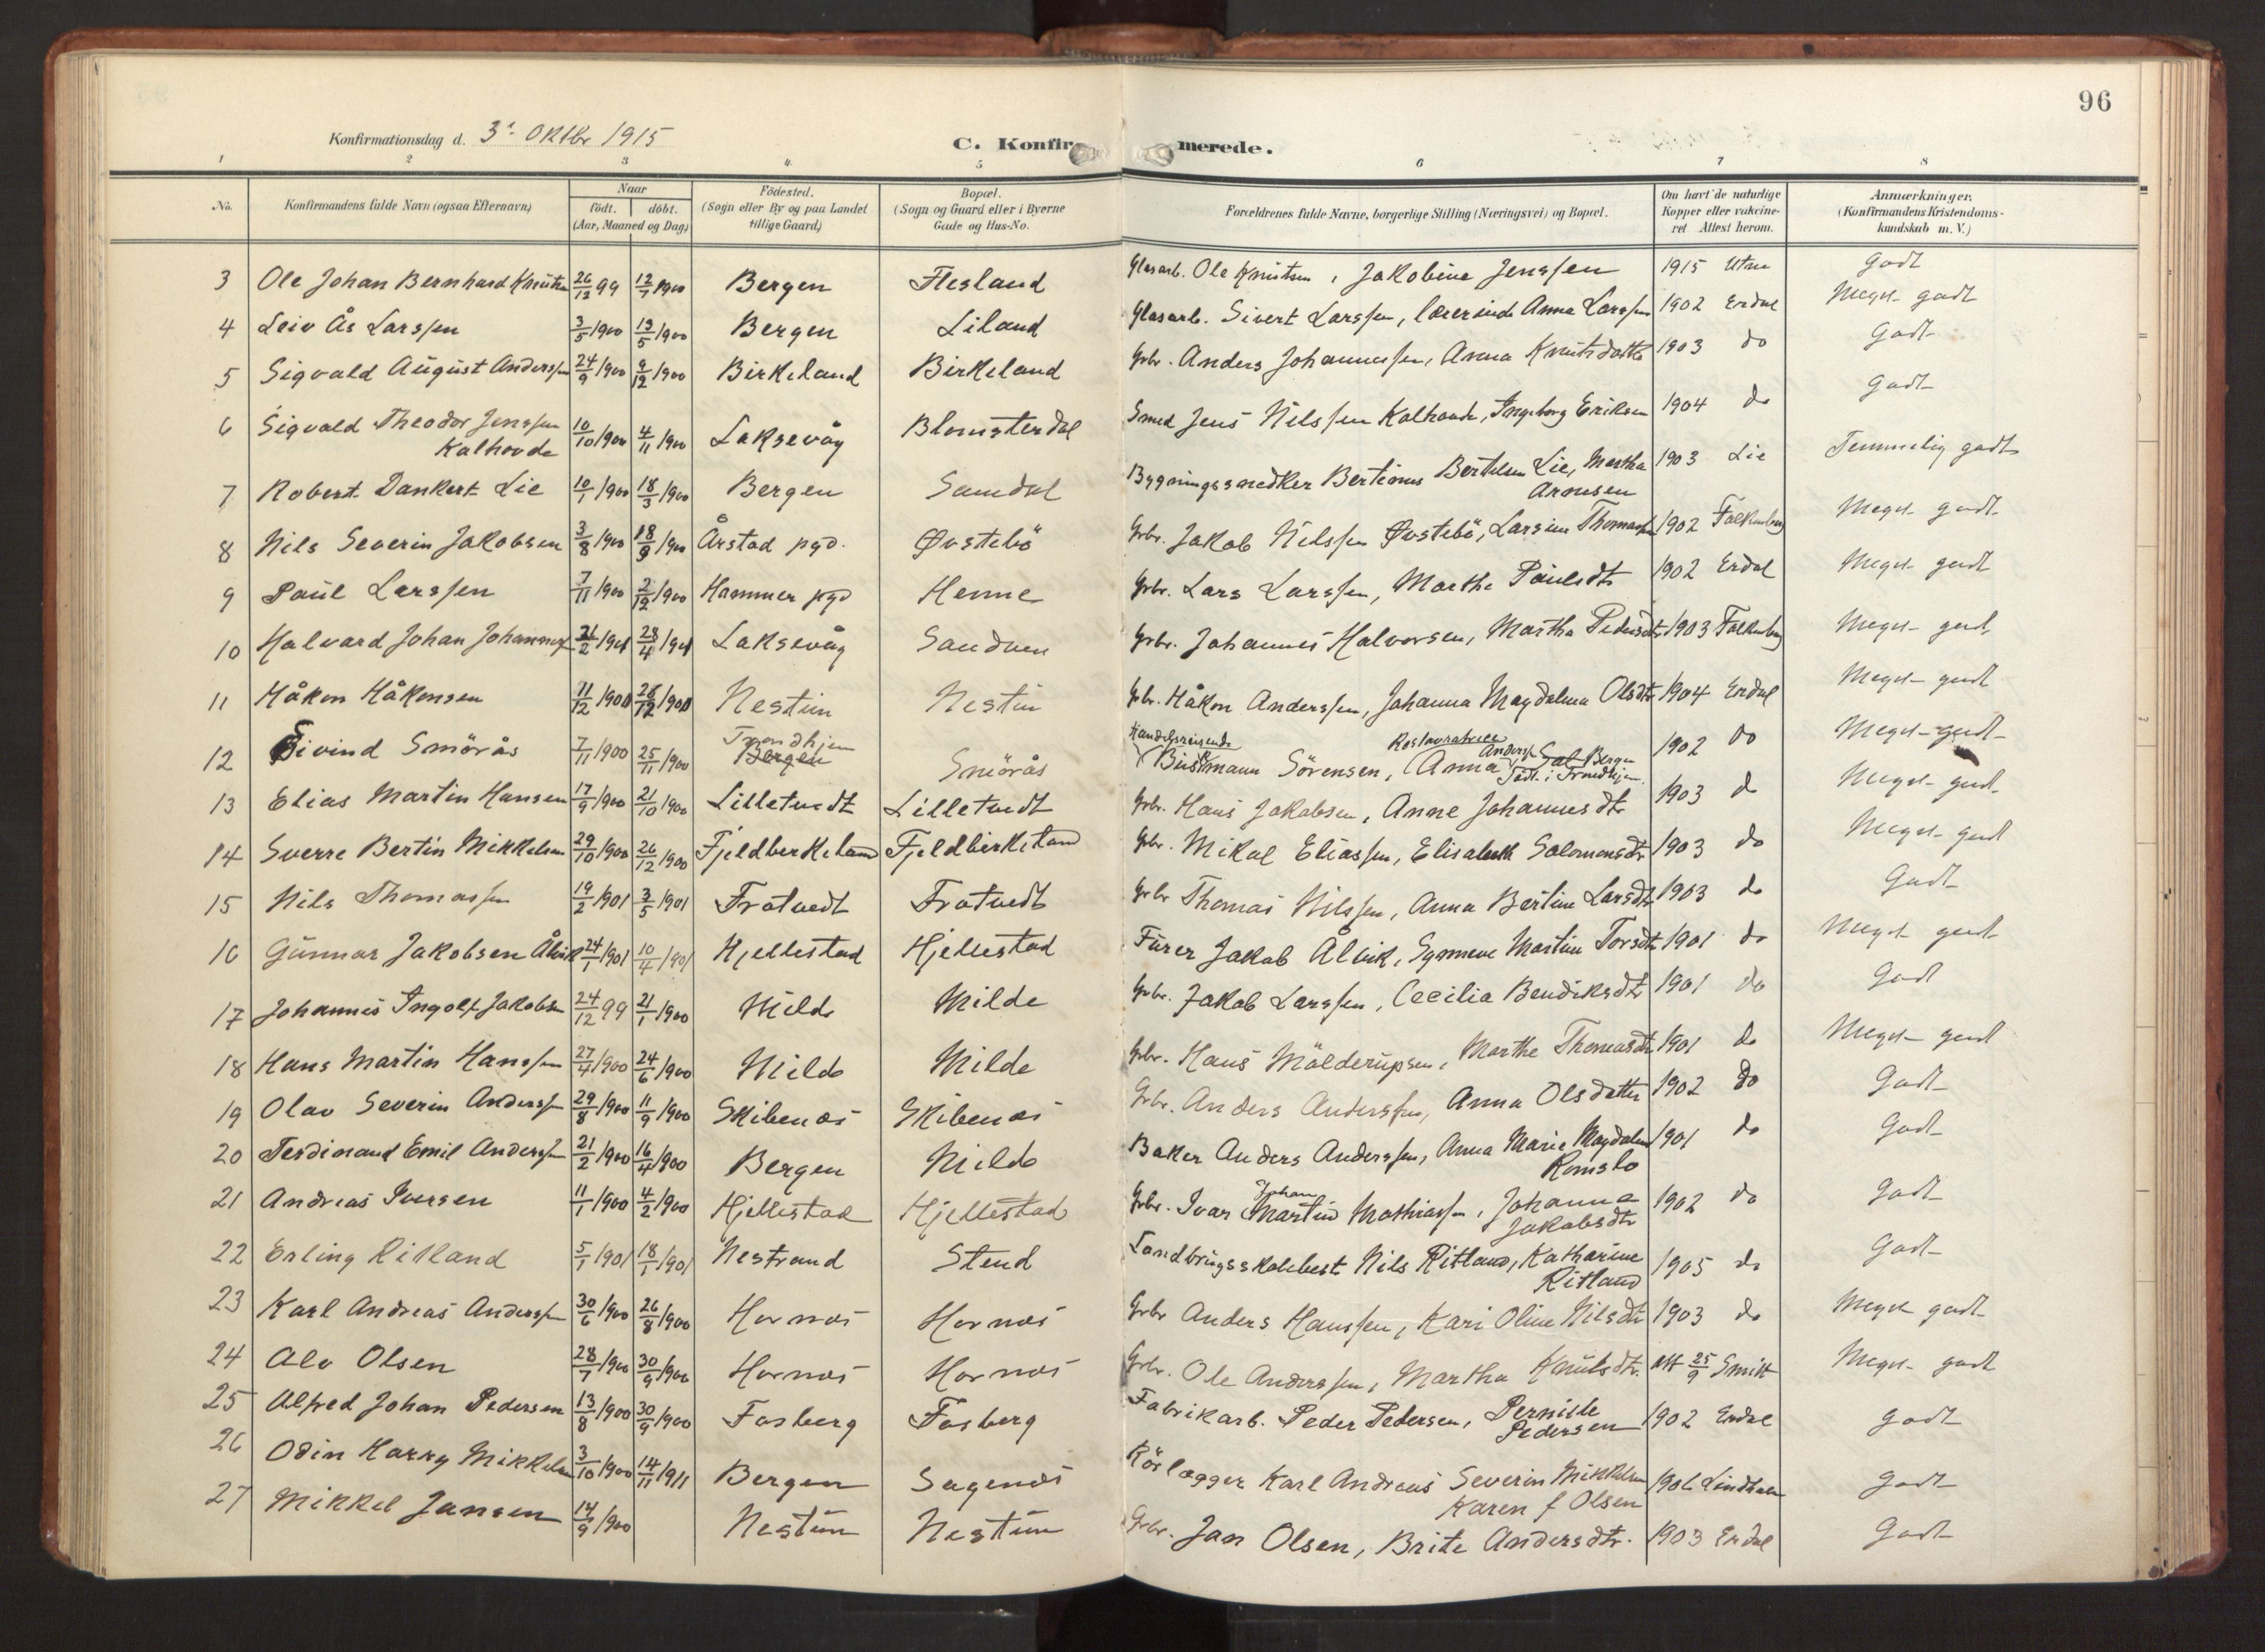 96
Konfirmationsdag d. 3. Oktbr 1915
C. Konfirmerede.
1 2 3 4. 5 6 7 8
No. Konfirmandens fulde Navn (ogsaa Efternavn) Naar födt. döbt. (Aar, Maaned og Dag) Födested. (Sogn eller By og paa Landet tillige Gaard) Bopæl. (Sogn og Gaard eller i Byerne Gade og Hus-No. Forældrenes fulde Navne, borgerlige Stilling (Næringsvei) og Bopæl. Om havt de naturlige Kopper eller vakcineret. Attest herom. Anmærkninger. (Konfirmandens Kristendomskundskab m. V.)
3 Ole Johan Bernhard Knutsen 26/12 99 12/7 1900 Bergen Flesland Glasarb. Ole Knutsen, Jakobine Jenssen 1915 Utne Godt
4 Leiv Ås Larssen 3/5 1900 13/5 1900 Bergen Liland Glasarb. Sivert Larssen, lærerinde Anna Larssen 1902 Erdal Meget godt
5 Sigvald August Anderssen 24/9 1900 9/12 1900 Birkeland Birkeland Grbr. Anders Johannessen, Anna Knutsdatter 1903 do Godt
6 Sigvald Theodor Jenssen Kalhovde 10/10 1900 4/11 1900 Laksevåg Blomsterdal Smed Jens Nilssen Kalhovde, Ingeborg Eriksen 1904 do Godt
7 Robert Dankert Lie 10/1 1900 18/3 1900 Bergen Sandal Bygningssnedker Bertinus Bertelsen Lie, Martha Arnesen 1903 Lie Temmelig godt
8 Nils Severin Jakobsen 3/8 1900 18/9 1900 Årstad pgd. Øvstebö Grbr. Jakob Nilssen Øvstebö, Larsine Thomassen 1902 Falkenberg Meget godt
9 Paul Larssen 7/11 1900 2/12 1900 Hammer pgd Henne Grbr. Lars Larssen, Marthe Paulsdtr 1902 Erdal Meget godt
10 Halvard Johan Johannessen 21/2 1901 28/4 1901 Laksevåg Sandven Grbr. Johannes Halvorsen, Martha Pedersdtr 1903 Falkenberg Meget godt
11 Håkon Håkonsen 11/12 1900 26/12 1900 Nestun Nestun Grbr. Håkon Anderssen, Johanna Magdalena Olsdtr 1904 Erdal Meget godt
12 Eivind Smörås 7/11 1900 25/11 1900 Trondhjem Bergen Smörås Handelsreisende Buskmann Sörensen, Restauratrice Anna Anderss. Sal Bergen Födt i Trondhjem 1902 do Meget godt
13 Elias Martin Hansen 17/9 1900 21/10 1900 Lilletvedt Lilletvedt Grbr. Hans Jakobsen, Anne Johannesdtr 1903 do Meget godt
14 Sverre Bertin Mikkelsen 29/10 1900 26/12 1900 Fjeldberkeland Fjeldbirkeland Grbr. Mikal Eliassen, Elisabeth Salomonsdtr 1903 do Meget godt
15 Nils Thomassen 19/2 1901 3/5 1901 Fratvedt Fratvedt Grbr Thomas Nilssen, Anna Bertine Larsdtr 1903 do Godt
16 Gunnar Jakobsen Ålvik 24/1 1901 10/4 1901 Hjellestad Hjellestad Fürer Jakob Ålvik, Synneve Martine Torsdtr 1901 do Meget godt
17 Johannes Ingolf Jakobsen 24/12 99 21/1 1900 Milde Milde Grbr. Jakob Larssen, Cecilia Bendiksdtr 1901 do Godt
18 Hans Martin Hanssen 27/4 1900 24/6 1900 Milde Milde Grbr. Hans Mölderupsen, Marthe Thomasdtr 1901 do Meget godt
19 Olav Severin Anderssen 29/8 1900 11/9 1900 Skibenæs Skibenæs Grbr. Anders Anderssen, Anna Olsdatter 1902 do Godt
20 Ferdinand Emil Anderssen 21/2 1900 16/4 1900 Bergen Milde Baker Anders Anderssen, Anna Marie Magdalena Romslo 1901 do Godt
21 Andreas Iversen 11/1 1900 4/2 1900 Hjellestad Hjellestad Grbr. Ivar Johan Martin Mathiassen, Johanna Jakobsdtr 1902 do Godt
22 Erling Ritland 5/1 1901 18/1 1901 Nestrand Stend Landbrugsskolebest. Nils Ritland, Katharine Ritland 1905 do Godt
23 Karl Andreas Anderssen 30/6 1900 26/8 1900 Hornæs Hornæs Grbr Anders Hanssen, Kari Oline Nilsdtr 1903 do Meget godt
24 Alv Olsen 28/7 1900 30/9 1900 Hornæs Hornæs Grbr. Ole Anderssen, Martha Knutsdtr. att 25/9 Smitt Meget godt
25 Alfred Johan Pedersen 13/8 1900 30/9 1900 Fosberg Fosberg Fabrikarb. Peder Pedersen, Pernille Pedersen 1902 Erdal Godt
26 Odin Harry Mikkelsen 3/10 1900 14/11 1911 Bergen Sagenæs Rörlægger Karl Andreas Severin Mikkelsen Karen f Olsen 1906 Lindholm Godt
27 Mikkel Jansen 14/9 1900 Nestun Nestun Grbr. Jan Olsen, Brite Andersdtr. 1903 Erdal Godt